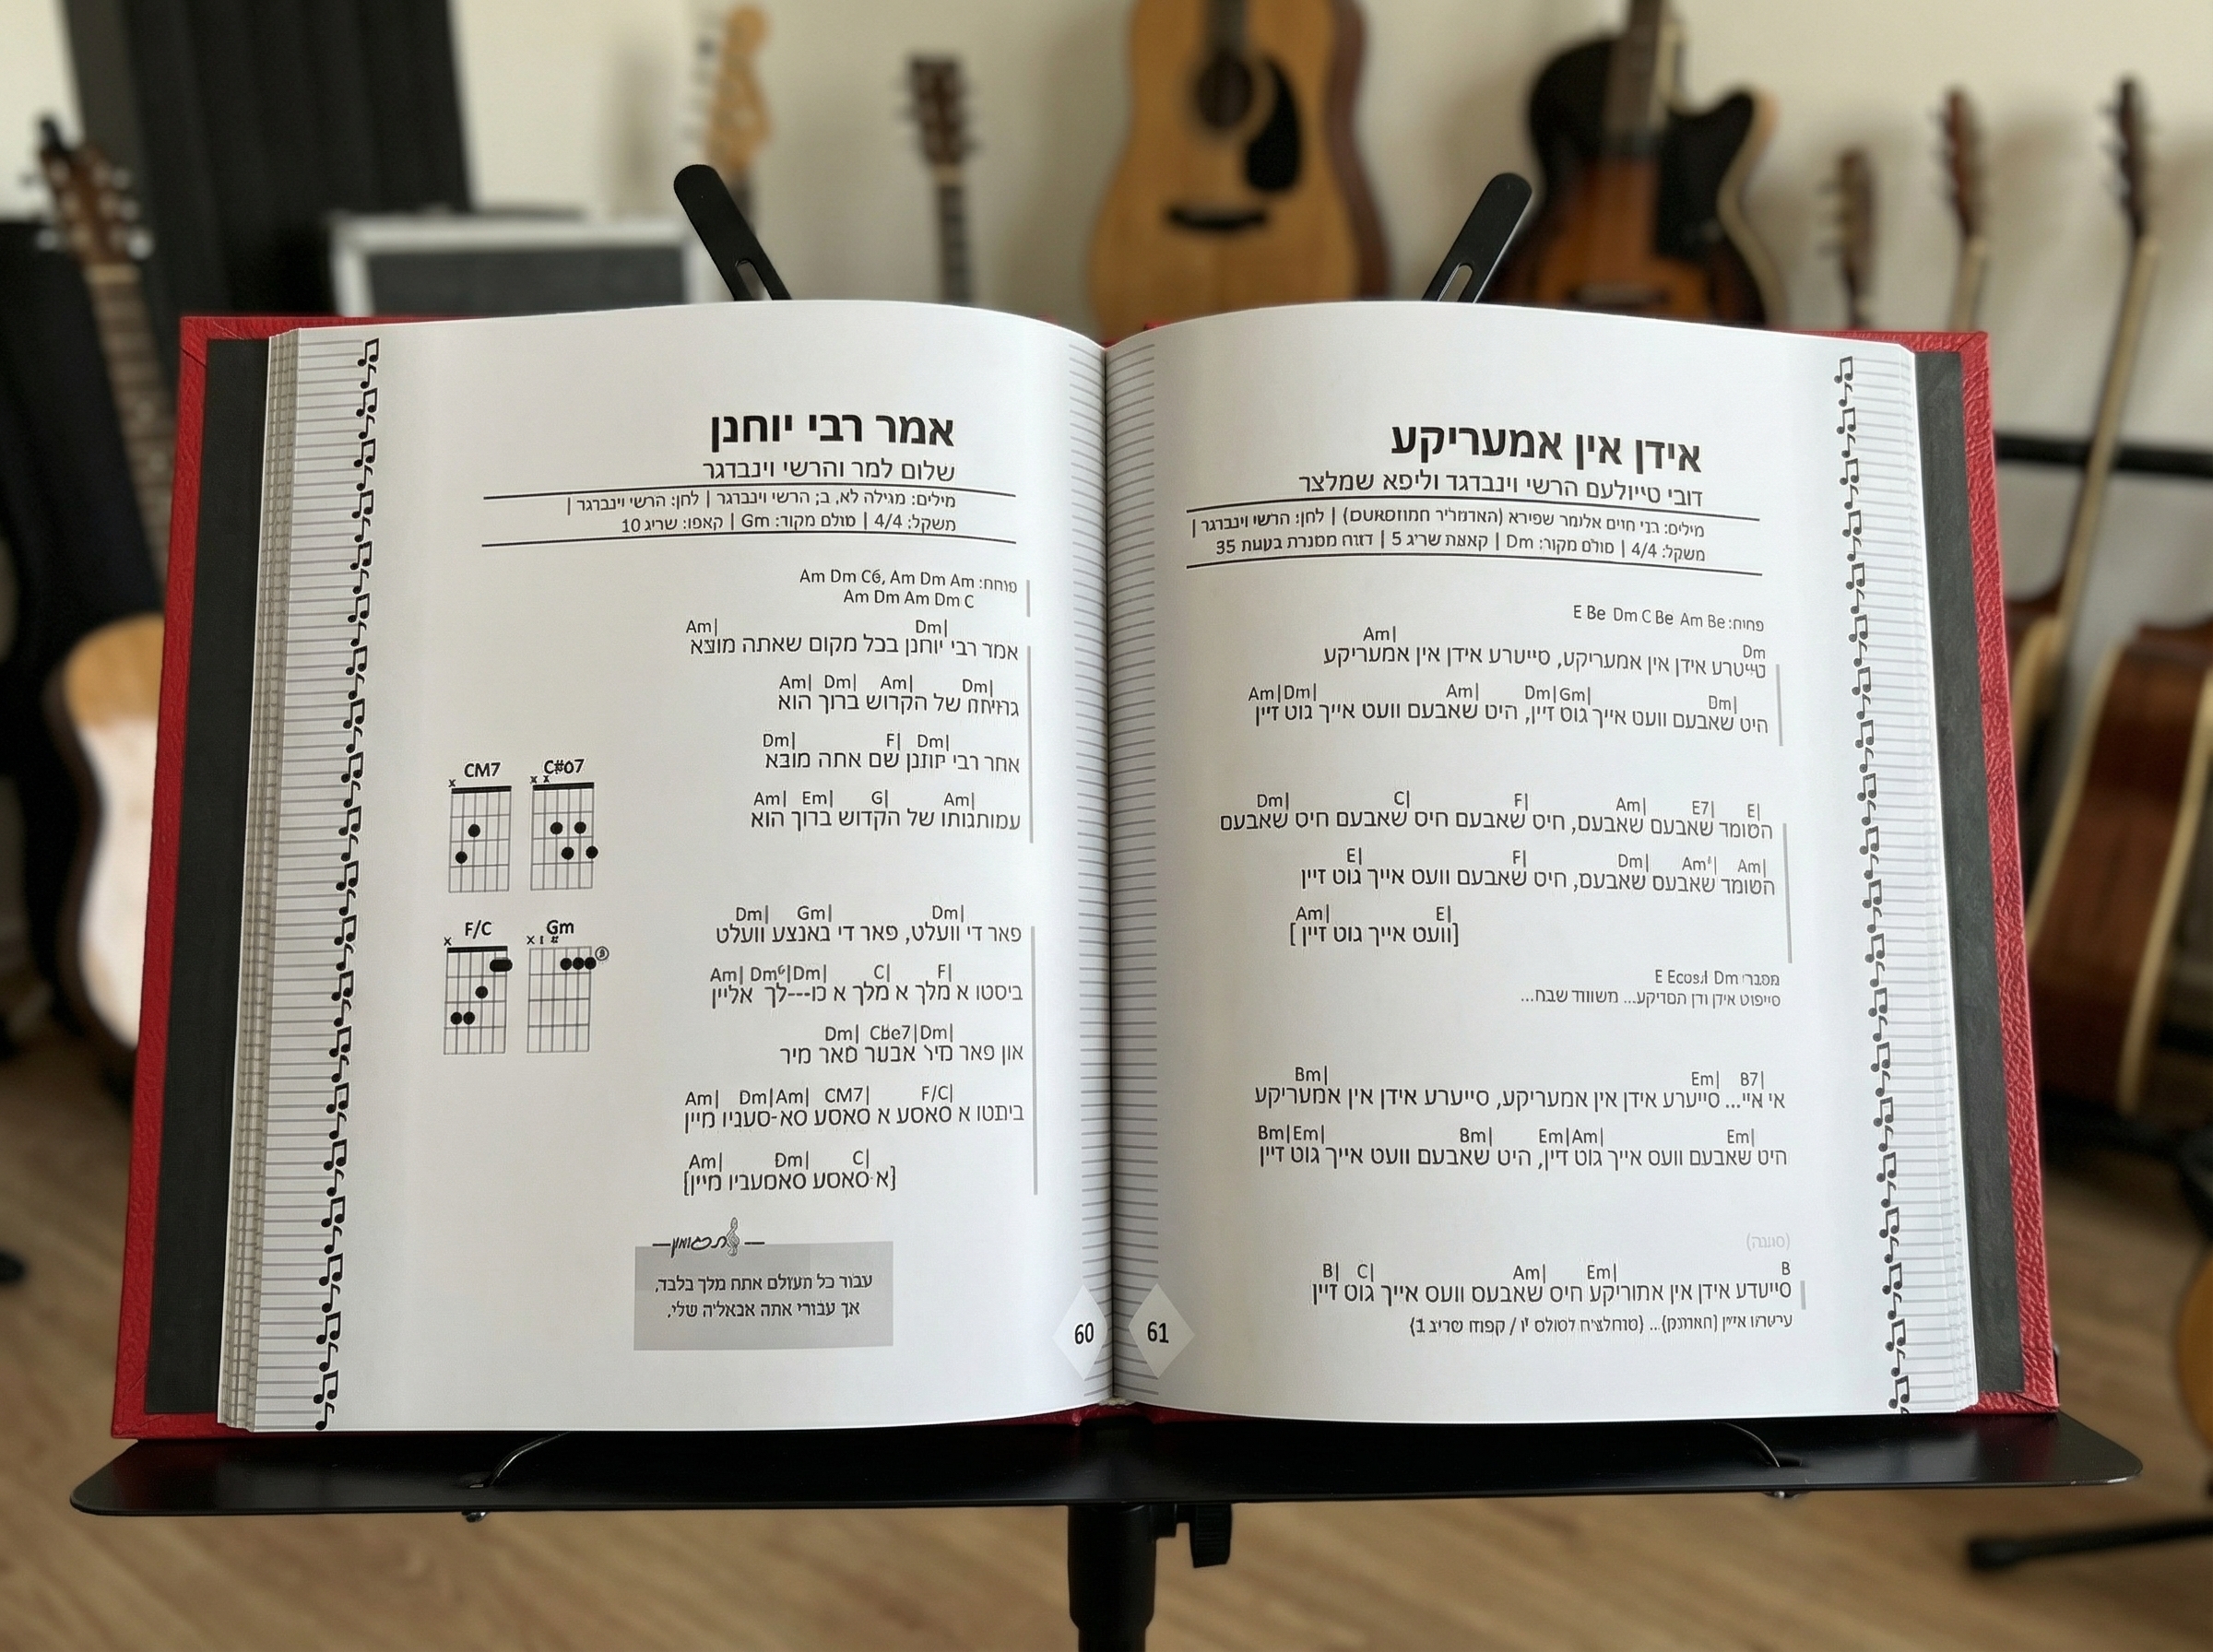 אמר רבי יוחנן
שלום למר והרשי וינבדגר
מילים: מגילה לא, ב; הרשי וינברגר | לחן: הרשי וינברגר |
משקל: 4/4 | סולם מקור: Gm | קאפו: שריג 10
Am Dm C6, Am Dm Am
Am Dm Am Dm C
Am| Dm|
אמד רבי יוחנן בכל מקום שאתה מוצא
Am| Dm| Am| Dm|
של הקדוש ברוך הוא
Dm| F| Dm|
אחר רבי יוחנן שם אתה מוצא
Am| Em| G| Am|
עמותגותו של הקדוש ברוך הוא
CM7 C#o7
F/C Gm
Dm| Gm| Dm|
פאר די וועלט, פאר די באנצע וועלט
Am| Dm| C| F|
ביסטו א מלך א מלך א כו---לך אליין
Dm| Cbe7|Dm|
און פאר מיר אבער סאר מיר
Am| Dm|Am| CM7| F/C|
ביתטו א סאסע א סאסע סא-סעניו מיין
Am| Dm| C|
[א סאסע סאסעביו מיין]
עבור כל העולם אתה מלך בלבד,
אך עבורי אתה אבאליה שלי,
60
אידן אין אמעריקע
דובי טייולעם הרשי וינבדגד וליפא שמלצר
מילים: חיים אלומר שפירא | לחן: הרשי וינברגר |
משקל: 4/4 | סולם מקור: Dm | שריג 5 | בעעות 35
E Be Dm C Be Am Be
Am| Dm
טייטרע אידן אין אמעריקע, סייערע אידן אין אמעריקע
Am|Dm| Am| Dm|Gm| Dm|
היט שאבעם וועט אייך גוט זיין, היט שאבעם וועט אייך גוט זיין
Dm| C| F| Am| E7| E|
הטומד שאבעם שאבעם, חיט שאבעם חיס שאבעם חיס שאבעם
E| F| Dm| Am| Am|
הטומד שאבעס שאבעם, חיס שאבעם וועט אייך גוט זיין
Am| E|
[וועט אייך גוט זיין]
סייפוט אידן ודן תסריקע... משווד שבח...
Bm| Em| B7|
אי איי... סייערע אידן אין אמעריקע, סייערע אידן אין אמעריקע
Bm|Em| Bm| Em|Am| Em|
היט שאבעם וועס אייך גוט דיין, היט שאבעם וועט אייך גוט דיין
B| C| Am| Em| B
סייעדע אידן אין אמוריקע חיס שאבעס וועס אייך גוט דיין
61